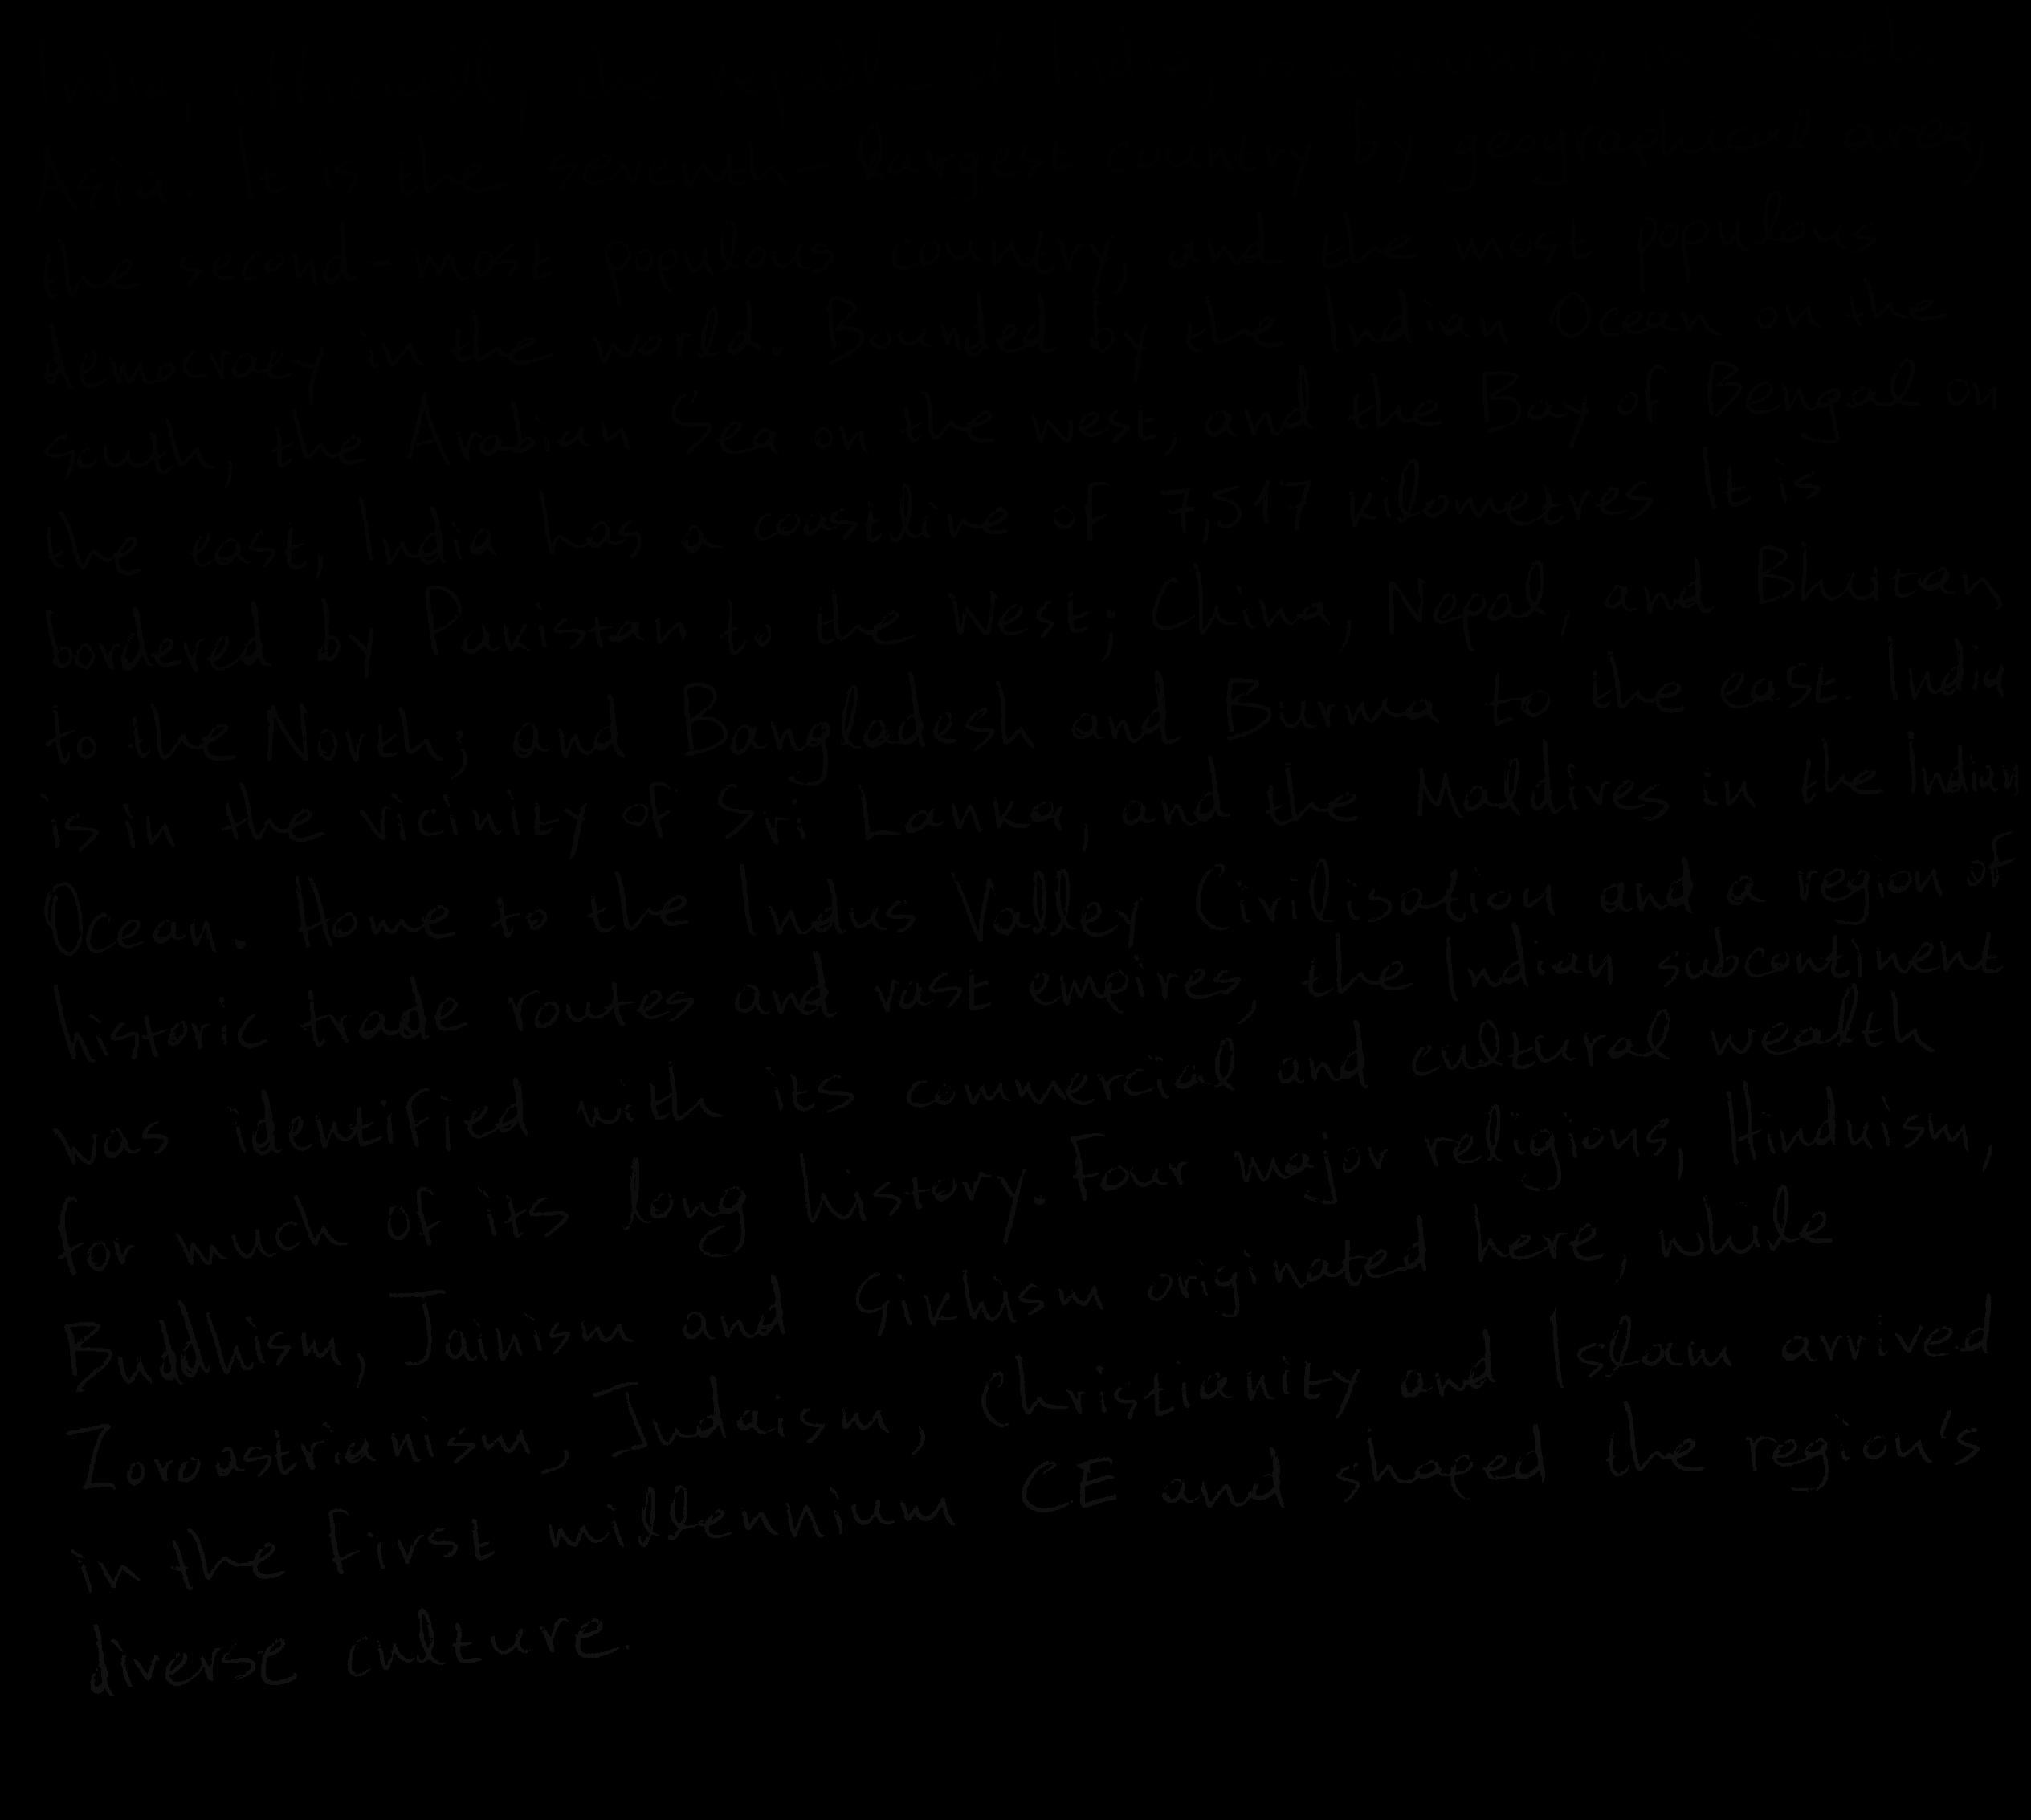 India,
Asia. It is the seventh-largest country by geographical area,
the second-most populous country, and the most populous
democracy in the world. Bounded by the Indian Ocean on the
south, the Arabian Sea on the west, and the Bay of Bengal on
the east, India has a coastline of 7,517 kilometres. It is
bordered by Pakistan to the West; China, Nepal, and Bhutan
to the North; and Bangladesh and Burma to the east. India
is in the vicinity of Sri Lanka, and the Maldives in the Indian
Ocean. Home to the Indus Valley Civilisation and a region of
historic trade routes and vast empires, the Indian subcontinent
was identified with its commercial and cultural wealth
for much of its long history. Four major religions, Hinduism,
Buddhism, Jainism and Sikhism originated here, while
Zoroastrianism, Judaism, Christianity and Islam arrived
in the first millennium CE and shaped the region's
diverse culture.